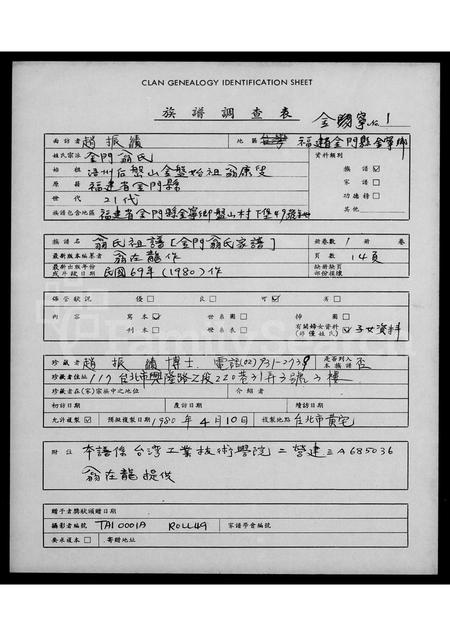 CLAN GENEALOGY IDENTIFICATION SHEET
族譜調查表
金門寧 No. 1
面訪者 趙振績 地區 福建金門縣金寧鄉
姓氏宗派 金門翁氏 資料類別
始祖 浯州后盤山金盤始祖翁康叟 族譜 ☑
原籍 福建省金門縣 家譜 □
世代 21代 功德榜 □
族譜包含地區 福建省金門縣金寧鄉盤山村下堡49號 其他
族譜名 翁氏祖譜[金門翁氏家譜] 冊卷數 1 冊 卷
最新版本編纂者 翁在龍作 頁數 14頁
最新出版年份或升段日期 民國69年(1980)作 缺冊缺頁部份撮樣
保管狀況 優 □ 良 □ 可 ☑ 劣 □
內容 寫本 ☑ 世系圖 □ 神圖 □
刊本 □ 世系表 □ 有關婦女資料(非僅姓氏) ☑子女資料
珍藏者 趙振績博士 電話(02)731-2738 是否列入本族譜 否
珍藏者住址 117台北市興隆路2段220巷31弄3號3樓
珍藏者在(宗)家族中之地位 介紹者
初訪日期 產訪日期 續訪日期
允許複製 ☑ 預擬複製日期 1980年4月10日 複製地點 台北市黃宅
附注 本譜係台灣工業技術學院二營建三A685036
翁在龍提供
贈予者獎狀頒贈日期
攝影者編號 TAI0001A ROLL49 家譜學會編號
要求複本 □ 寄贈地址